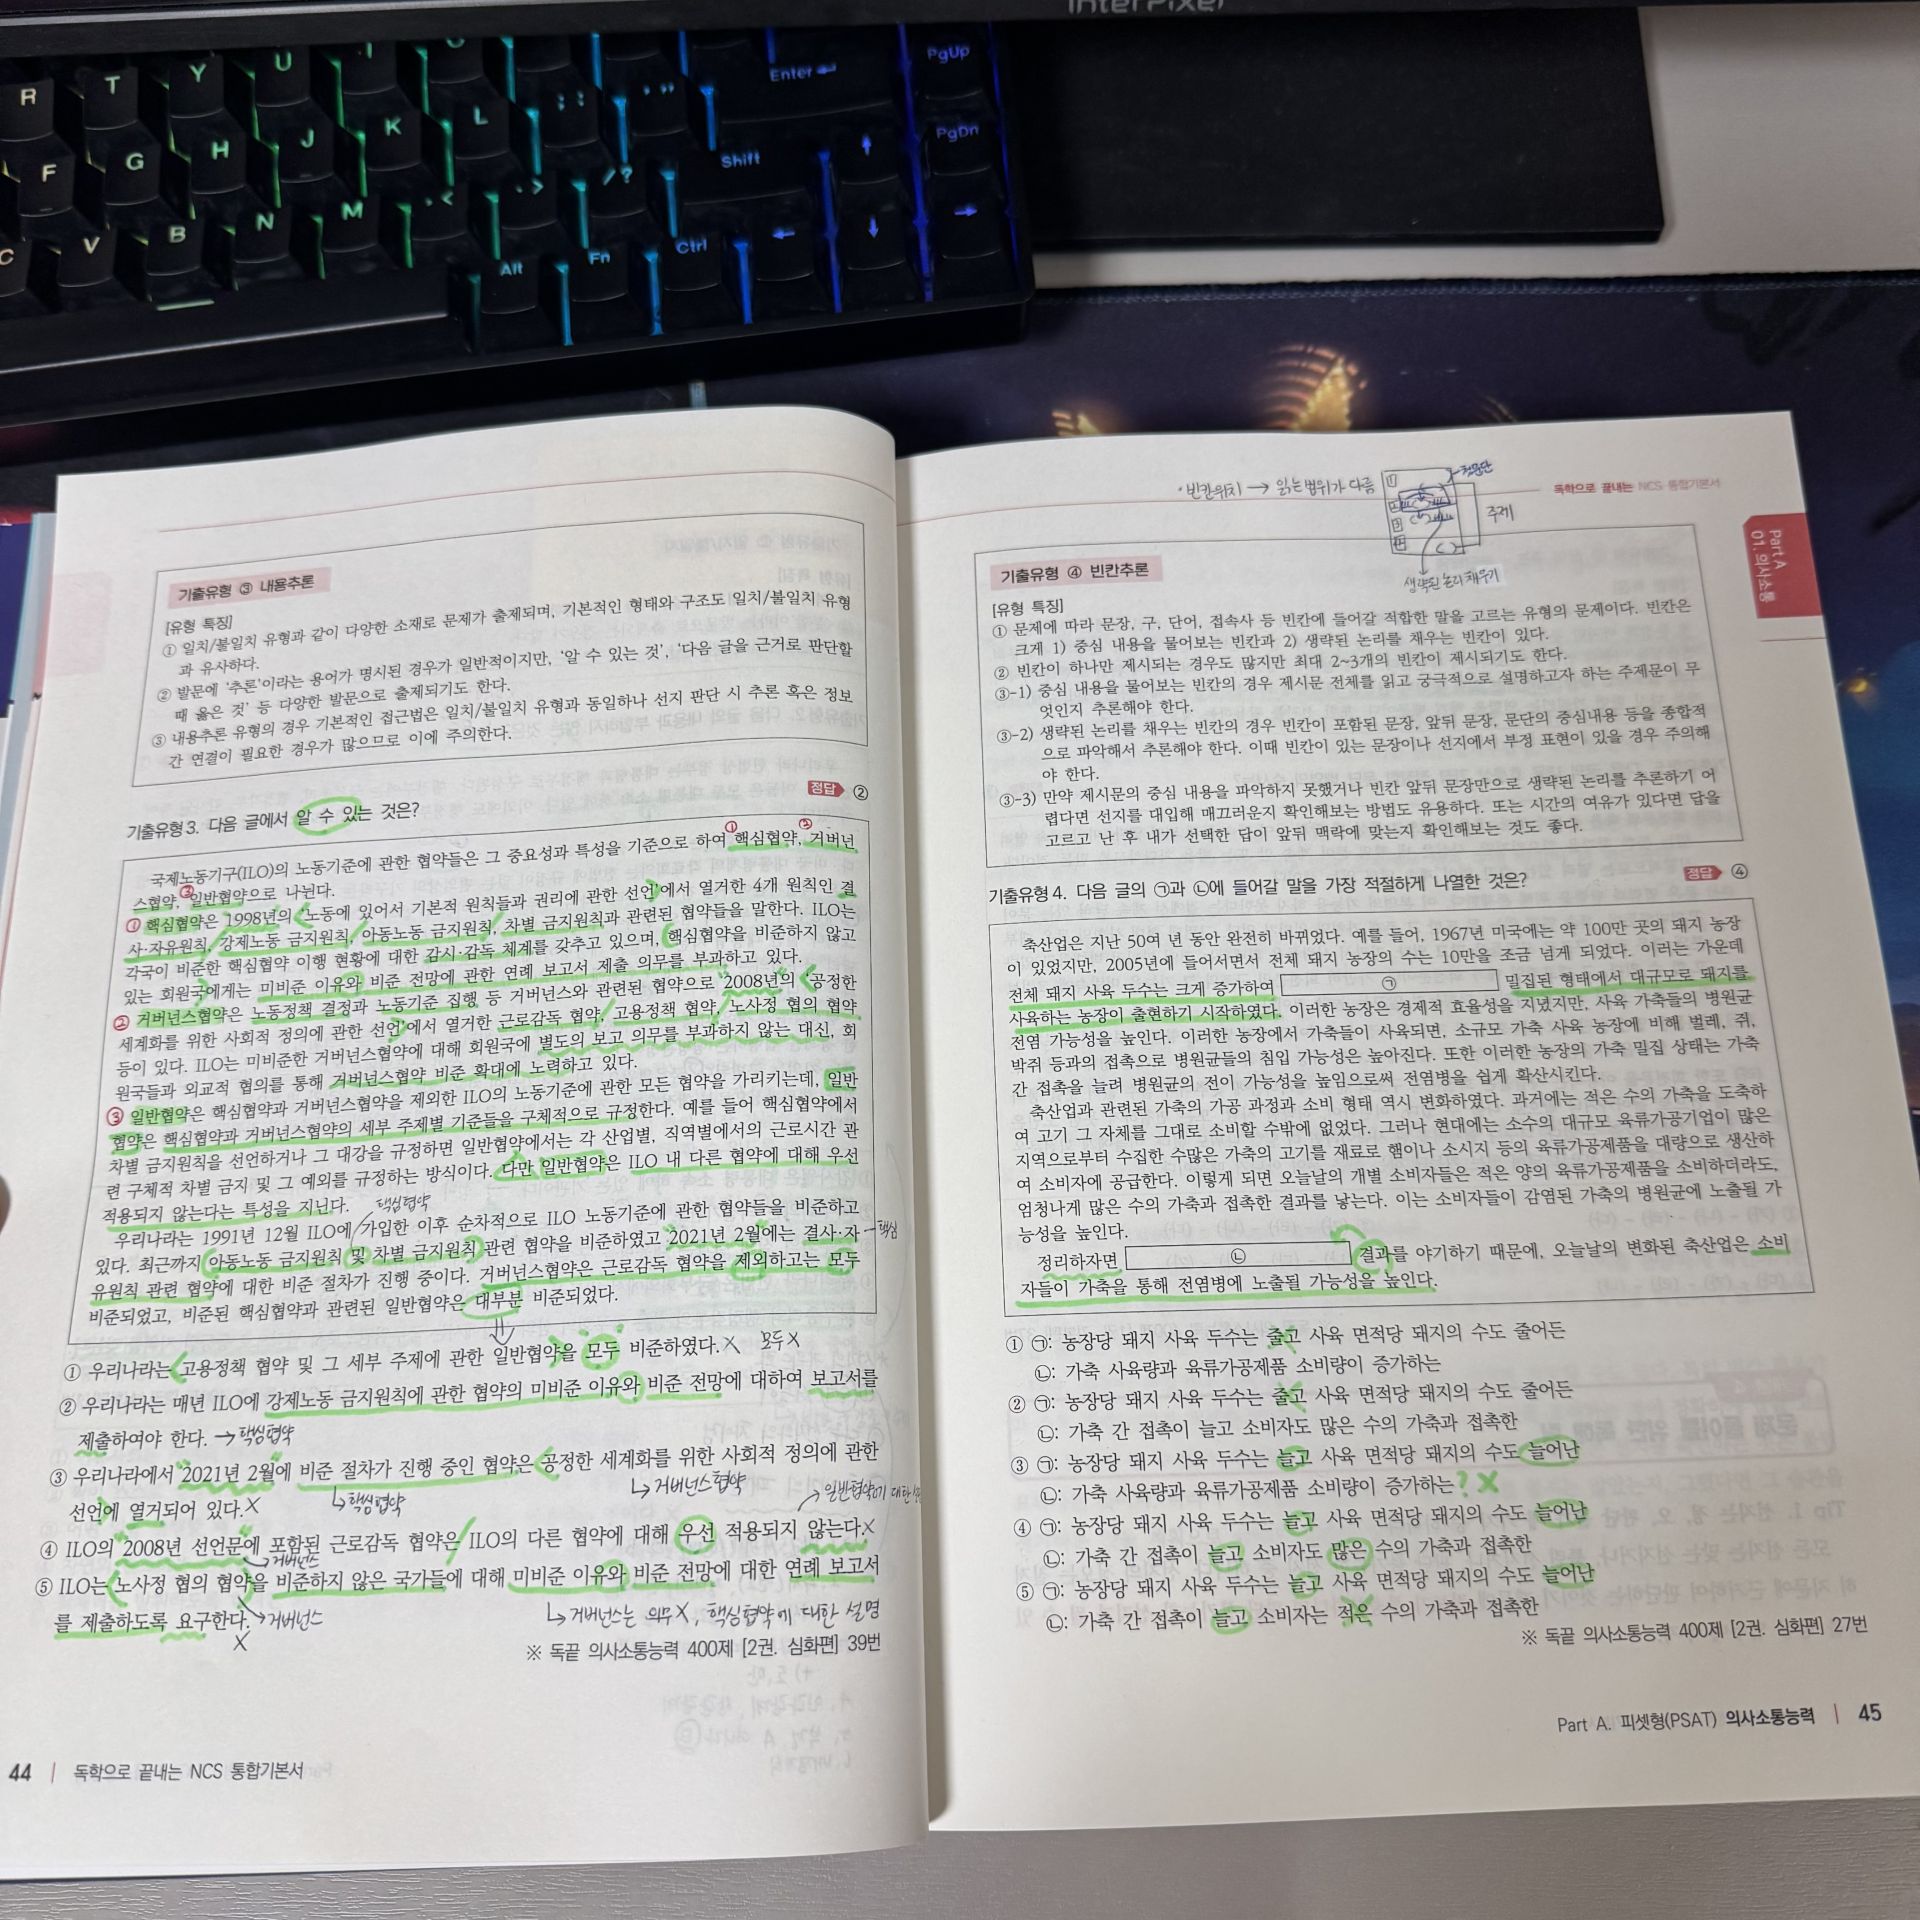 InterPixel
R T Y U Enter PgUp
F G H J K L ; : ' " PgDn
C V B N M , < . > / ? Shift
Alt Fn Ctrl
기출유형 ③ 내용추론
[유형 특징]
① 일치/불일치 유형과 같이 다양한 소재로 문제가 출제되며, 기본적인 형태와 구조도 일치/불일치 유형
과 유사하다.
② 발문에 ‘추론’이라는 용어가 명시된 경우가 일반적이지만, ‘알 수 있는 것’, ‘다음 글을 근거로 판단할
때 옳은 것’ 등 다양한 발문으로 출제되기도 한다.
③ 내용추론 유형의 경우 기본적인 접근법은 일치/불일치 유형과 동일하나 선지 판단 시 추론 혹은 정보
간 연결이 필요한 경우가 많으므로 이에 주의한다.
정답 ②
기출유형3. 다음 글에서 알 수 있는 것은?
① ②
국제노동기구(ILO)의 노동기준에 관한 협약들은 그 중요성과 특성을 기준으로 하여 핵심협약, 거버넌
③
스협약, 일반협약으로 나뉜다.
① 핵심협약은 1998년의 ‘노동에 있어서 기본적 원칙들과 권리에 관한 선언’에서 열거한 4개 원칙인 결
사·자유원칙, 강제노동 금지원칙, 아동노동 금지원칙, 차별 금지원칙과 관련된 협약들을 말한다. ILO는
각국이 비준한 핵심협약 이행 현황에 대한 감시·감독 체계를 갖추고 있으며, 핵심협약을 비준하지 않고
있는 회원국에게는 미비준 이유와 비준 전망에 관한 연례 보고서 제출 의무를 부과하고 있다.
② 거버넌스협약은 노동정책 결정과 노동기준 집행 등 거버넌스와 관련된 협약으로 2008년의 ‘공정한
세계화를 위한 사회적 정의에 관한 선언’에서 열거한 근로감독 협약, 고용정책 협약, 노사정 협의 협약
등이 있다. ILO는 미비준한 거버넌스협약에 대해 회원국에 별도의 보고 의무를 부과하지 않는 대신, 회
원국들과 외교적 협의를 통해 거버넌스협약 비준 확대에 노력하고 있다.
③ 일반협약은 핵심협약과 거버넌스협약을 제외한 ILO의 노동기준에 관한 모든 협약을 가리키는데, 일반
협약은 핵심협약과 거버넌스협약의 세부 주제별 기준들을 구체적으로 규정한다. 예를 들어 핵심협약에서
차별 금지원칙을 선언하거나 그 대강을 규정하면 일반협약에서는 각 산업별, 직역별에서의 근로시간 관
련 구체적 차별 금지 및 그 예외를 규정하는 방식이다. 다만 일반협약은 ILO 내 다른 협약에 대해 우선
적용되지 않는다는 특성을 지닌다.
핵심협약
우리나라는 1991년 12월 ILO에 가입한 이후 순차적으로 ILO 노동기준에 관한 협약들을 비준하고
있다. 최근까지 아동노동 금지원칙 및 차별 금지원칙 관련 협약을 비준하였고 2021년 2월에는 결사·자 → 핵심
유원칙 관련 협약에 대한 비준 절차가 진행 중이다. 거버넌스협약은 근로감독 협약을 제외하고는 모두
비준되었고, 비준된 핵심협약과 관련된 일반협약은 대부분 비준되었다.
① 우리나라는 고용정책 협약 및 그 세부 주제에 관한 일반협약을 모두 비준하였다. X 모두 X
② 우리나라는 매년 ILO에 강제노동 금지원칙에 관한 협약의 미비준 이유와 비준 전망에 대하여 보고서를
제출하여야 한다. → 핵심협약
③ 우리나라에서 2021년 2월에 비준 절차가 진행 중인 협약은 공정한 세계화를 위한 사회적 정의에 관한
↳ 핵심협약 ↳ 거버넌스협약
선언에 열거되어 있다. X
→ 일반협약에 대한
④ ILO의 2008년 선언문에 포함된 근로감독 협약은 ILO의 다른 협약에 대해 우선 적용되지 않는다. X
↳ 거버넌스
⑤ ILO는 노사정 협의 협약을 비준하지 않은 국가들에 대해 미비준 이유와 비준 전망에 대한 연례 보고서
를 제출하도록 요구한다. → 거버넌스
X
↳ 거버넌스는 의무 X, 핵심협약에 대한 설명
※ 독끝 의사소통능력 400제 [2권. 심화편] 39번
44 | 독학으로 끝내는 NCS 통합기본서
· 빈칸위치 → 읽는 범위가 다름
주제
생략된 논리 채우기
독학으로 끝내는 NCS 통합기본서
Part A
01. 의사소통
기출유형 ④ 빈칸추론
[유형 특징]
① 문제에 따라 문장, 구, 단어, 접속사 등 빈칸에 들어갈 적합한 말을 고르는 유형의 문제이다. 빈칸은
크게 1) 중심 내용을 물어보는 빈칸과 2) 생략된 논리를 채우는 빈칸이 있다.
② 빈칸이 하나만 제시되는 경우도 많지만 최대 2~3개의 빈칸이 제시되기도 한다.
③-1) 중심 내용을 물어보는 빈칸의 경우 제시문 전체를 읽고 궁극적으로 설명하고자 하는 주제문이 무
엇인지 추론해야 한다.
③-2) 생략된 논리를 채우는 빈칸의 경우 빈칸이 포함된 문장, 앞뒤 문장, 문단의 중심내용 등을 종합적
으로 파악해서 추론해야 한다. 이때 빈칸이 있는 문장이나 선지에서 부정 표현이 있을 경우 주의해
야 한다.
③-3) 만약 제시문의 중심 내용을 파악하지 못했거나 빈칸 앞뒤 문장만으로 생략된 논리를 추론하기 어
렵다면 선지를 대입해 매끄러운지 확인해보는 방법도 유용하다. 또는 시간의 여유가 있다면 답을
고르고 난 후 내가 선택한 답이 앞뒤 맥락에 맞는지 확인해보는 것도 좋다.
정답 ④
기출유형4. 다음 글의 ㉠과 ㉡에 들어갈 말을 가장 적절하게 나열한 것은?
축산업은 지난 50여 년 동안 완전히 바뀌었다. 예를 들어, 1967년 미국에는 약 100만 곳의 돼지 농장
이 있었지만, 2005년에 들어서면서 전체 돼지 농장의 수는 10만을 조금 넘게 되었다. 이러는 가운데
전체 돼지 사육 두수는 크게 증가하여 ㉠ 밀집된 형태에서 대규모로 돼지를
사육하는 농장이 출현하기 시작하였다. 이러한 농장은 경제적 효율성을 지녔지만, 사육 가축들의 병원균
전염 가능성을 높인다. 이러한 농장에서 가축들이 사육되면, 소규모 가축 사육 농장에 비해 벌레, 쥐,
박쥐 등과의 접촉으로 병원균들의 침입 가능성은 높아진다. 또한 이러한 농장의 가축 밀집 상태는 가축
간 접촉을 늘려 병원균의 전이 가능성을 높임으로써 전염병을 쉽게 확산시킨다.
축산업과 관련된 가축의 가공 과정과 소비 형태 역시 변화하였다. 과거에는 적은 수의 가축을 도축하
여 고기 그 자체를 그대로 소비할 수밖에 없었다. 그러나 현대에는 소수의 대규모 육류가공기업이 많은
지역으로부터 수집한 수많은 가축의 고기를 재료로 햄이나 소시지 등의 육류가공제품을 대량으로 생산하
여 소비자에 공급한다. 이렇게 되면 오늘날의 개별 소비자들은 적은 양의 육류가공제품을 소비하더라도,
엄청나게 많은 수의 가축과 접촉한 결과를 낳는다. 이는 소비자들이 감염된 가축의 병원균에 노출될 가
능성을 높인다.
정리하자면 ㉡ 결과를 야기하기 때문에, 오늘날의 변화된 축산업은 소비
자들이 가축을 통해 전염병에 노출될 가능성을 높인다.
① ㉠: 농장당 돼지 사육 두수는 줄고 사육 면적당 돼지의 수도 줄어든
㉡: 가축 사육량과 육류가공제품 소비량이 증가하는
② ㉠: 농장당 돼지 사육 두수는 줄고 사육 면적당 돼지의 수도 줄어든
㉡: 가축 간 접촉이 늘고 소비자도 많은 수의 가축과 접촉한
③ ㉠: 농장당 돼지 사육 두수는 늘고 사육 면적당 돼지의 수도 늘어난
㉡: 가축 사육량과 육류가공제품 소비량이 증가하는 ? X
④ ㉠: 농장당 돼지 사육 두수는 늘고 사육 면적당 돼지의 수도 늘어난
㉡: 가축 간 접촉이 늘고 소비자도 많은 수의 가축과 접촉한
⑤ ㉠: 농장당 돼지 사육 두수는 늘고 사육 면적당 돼지의 수도 늘어난
㉡: 가축 간 접촉이 늘고 소비자는 적은 수의 가축과 접촉한
※ 독끝 의사소통능력 400제 [2권. 심화편] 27번
Part A. 피셋형(PSAT) 의사소통능력 | 45